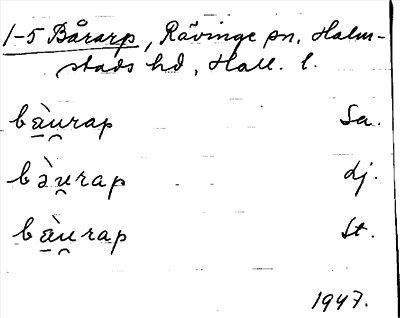 1-5 Bårarp, Rävinge sn. Halm-
stads hd, Hall. l.
ba̱ù̯rap Sa.
bəù̯rap dj.
ba̱ù̯rap St.
1947.